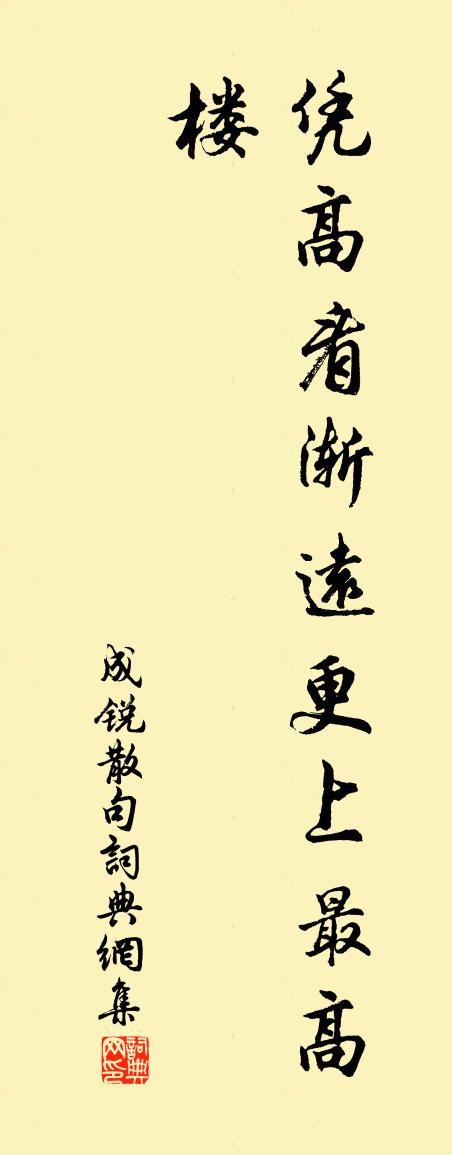 凭高看渐遠更上最高
楼
成锐散句詞典網集
詞典网印